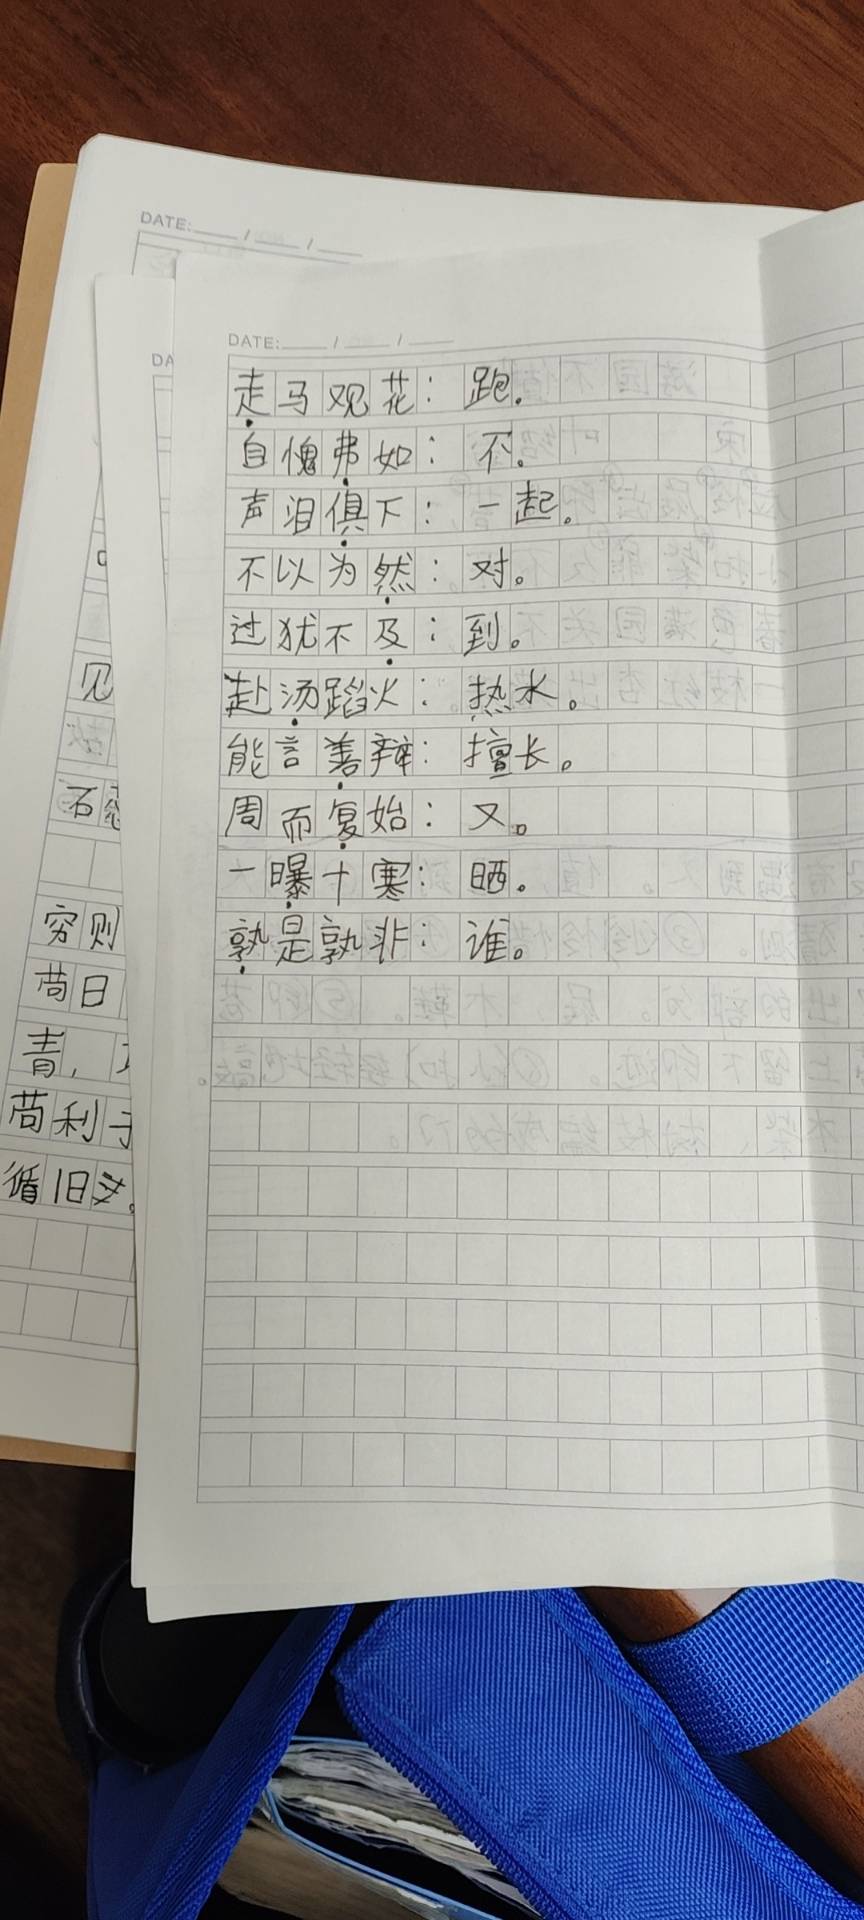 DATE: / /
DA
DATE: / /
走马观花：跑。
自愧弗如：不。
声泪俱下：一起。
不以为然：对。
过犹不及：到。
赴汤蹈火：热水。
能言善辩：擅长。
周而复始：又。
一曝十寒：晒。
孰是孰非：谁。
见
石
穷则
苟日
青，
苟利于
循旧